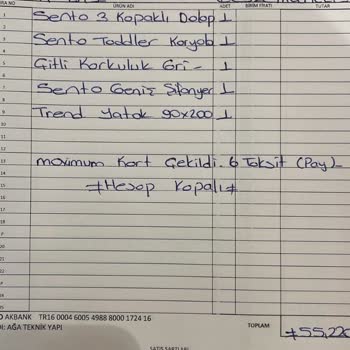 SIRA NO ÜRÜN ADI ADET BİRİM FİYATI TUTAR
1 Sento 3 Kapaklı Dolap 1
2
3 Sento Toddler Karyola 1
4
5 Çitli Korkuluk Gri - 1
6
7 Sento Geniş Şifonyer 1
8
9 Trend Yatak 90x200 1
10
11
12
13 maximum Kart Çekildi. 6 Taksit (Pay)
14
15 ≠Hesap Kapalı≠
16
17
18
19
20
AKBANK TR16 0004 6005 4988 8000 1724 16
AĞA TEKNİK YAPI
TOPLAM
SATIŞ ŞARTLARI